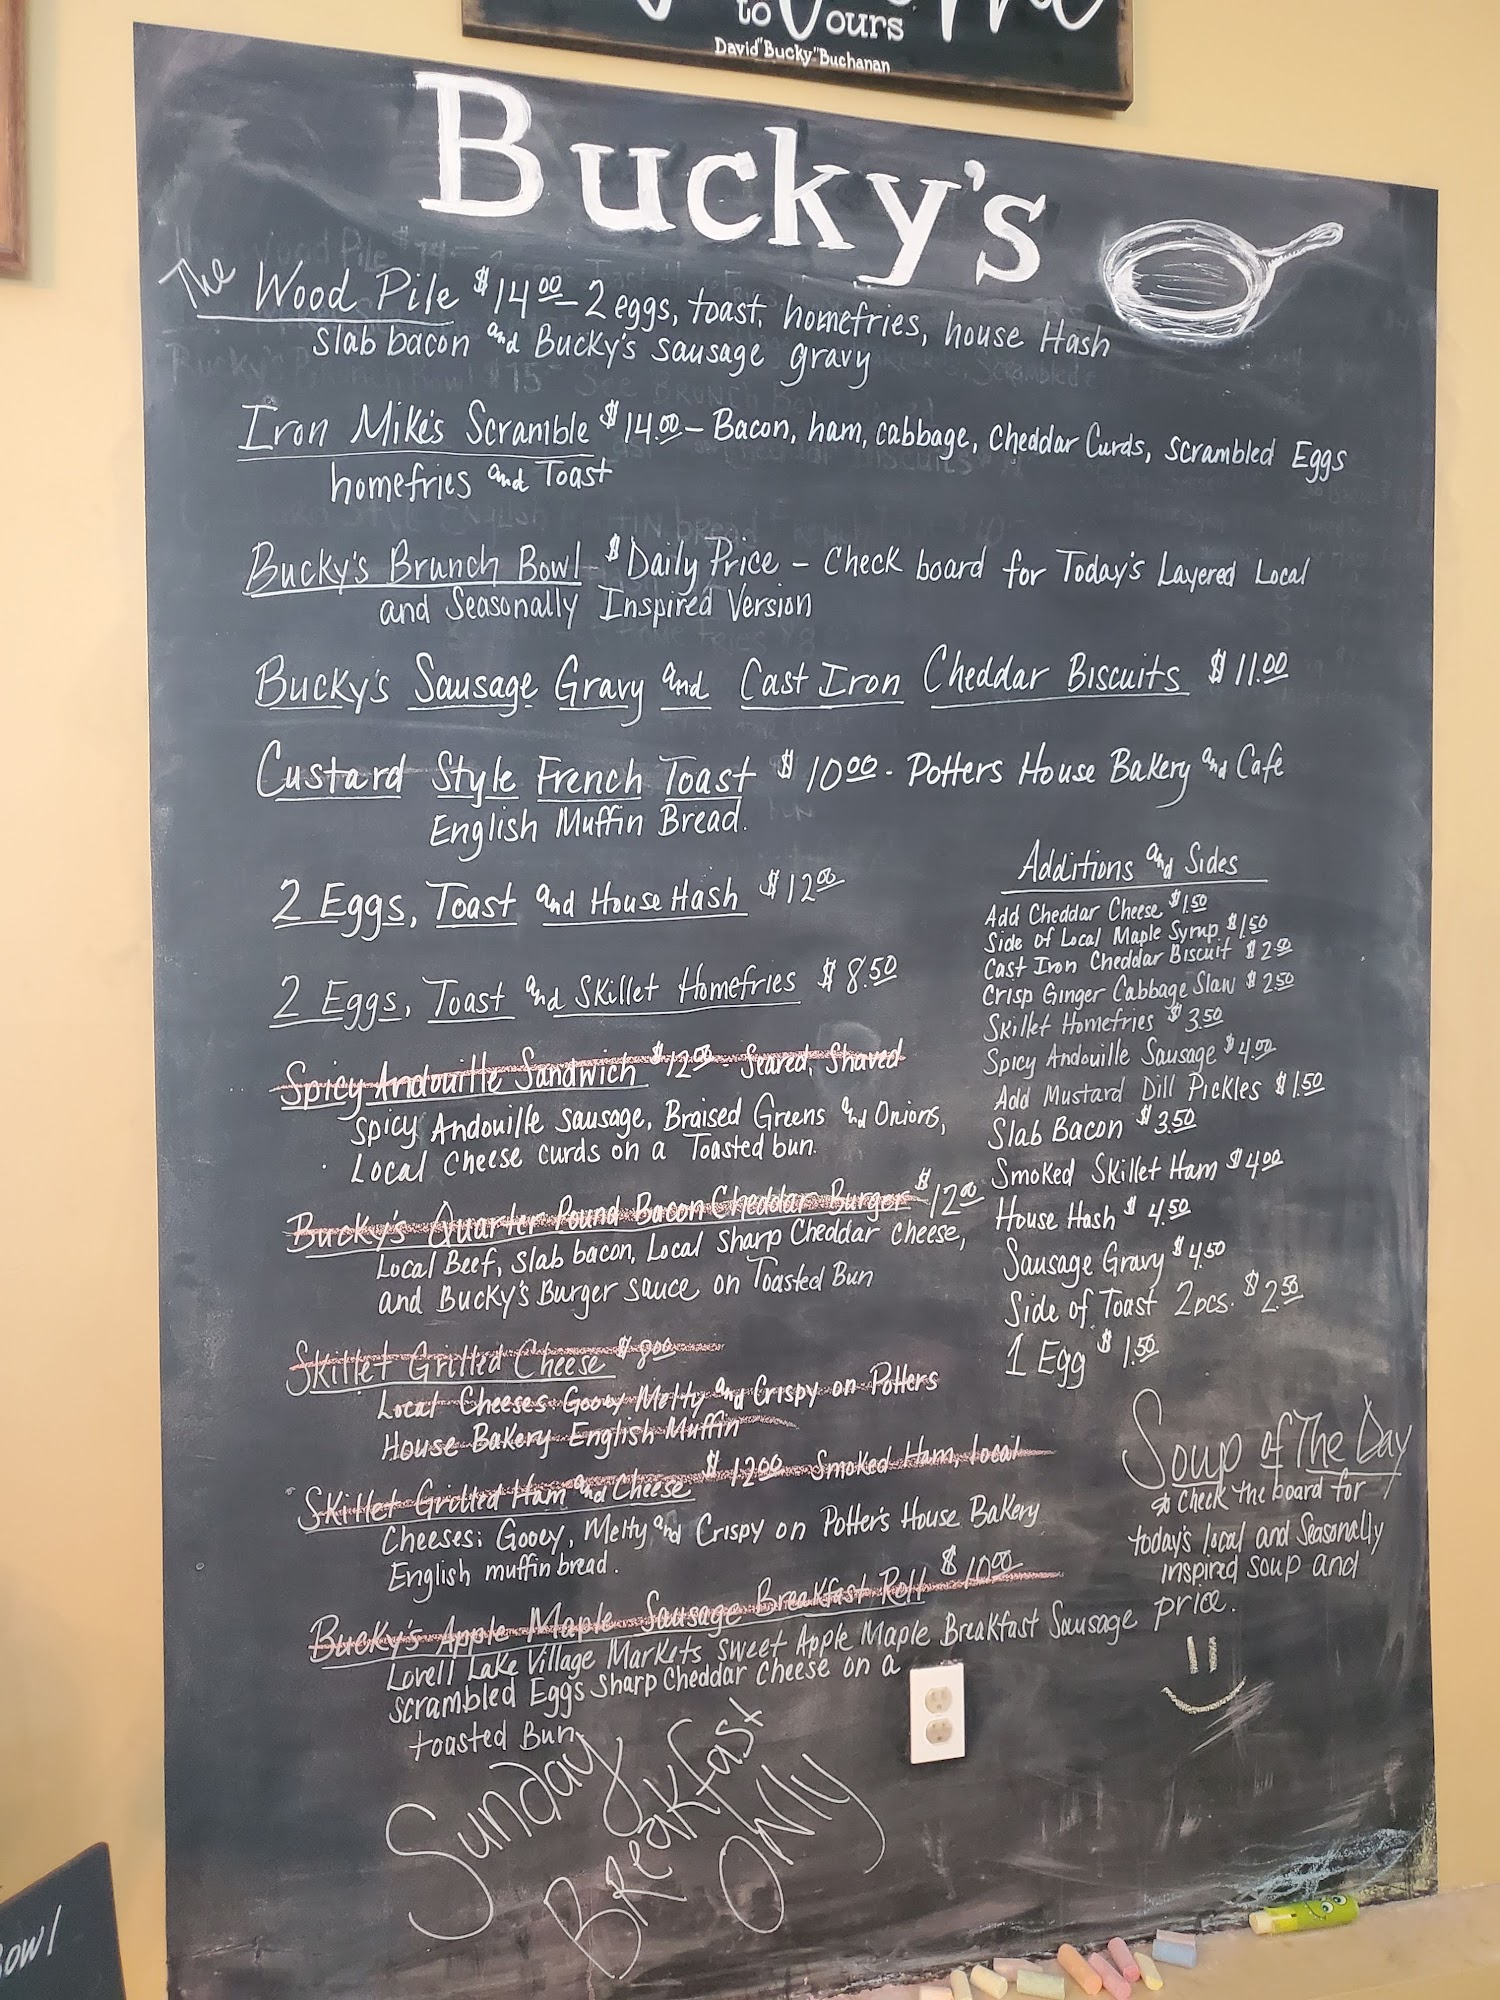 to Yours
David "Bucky" Buchanan
Bucky's
The Wood Pile $14.00 - 2 eggs, toast, homefries, house Hash
slab bacon and Bucky's sausage gravy
Iron Mike's Scramble $14.00 - Bacon, ham, cabbage, Cheddar Curds, scrambled Eggs
homefries and Toast
Bucky's Brunch Bowl - $Daily Price - Check board for Today's Layered Local
and Seasonally Inspired Version
Bucky's Sausage Gravy and Cast Iron Cheddar Biscuits $11.00
Custard Style French Toast $10.00 - Potters House Bakery and Cafe
English Muffin Bread.
2 Eggs, Toast and House Hash $12.00
2 Eggs, Toast and Skillet Homefries $8.50
Spicy Andouille Sandwich $12.00 - Seared, Shaved
Spicy Andouille sausage, Braised Greens and Onions,
Local Cheese curds on a Toasted bun.
Bucky's Quarter Pound Bacon Cheddar Burger $12.00
Local Beef, slab bacon, Local sharp Cheddar cheese,
and Bucky's Burger sauce on Toasted Bun
Skillet Grilled Cheese $8.00
Local Cheeses Gooey Melty and Crispy on Potters
House Bakery English Muffin
Skillet Grilled Ham and Cheese $12.00 Smoked Ham, local
Cheeses; Gooey, Melty and Crispy on Potter's House Bakery
English muffin bread.
Bucky's Apple Maple Sausage Breakfast Roll $10.00
Lovell Lake Village Markets sweet Apple Maple Breakfast Sausage
scrambled Eggs sharp Cheddar cheese on a
toasted Bun
Sunday
Breakfast
ONly
Additions and Sides
Add Cheddar Cheese $1.50
Side of Local Maple Syrup $1.50
Cast Iron Cheddar Biscuit $2.50
Crisp Ginger Cabbage Slaw $2.50
Skillet Homefries $3.50
Spicy Andouille Sausage $4.00
Add Mustard Dill Pickles $1.50
Slab Bacon $3.50
Smoked Skillet Ham $4.00
House Hash $4.50
Sausage Gravy $4.50
Side of Toast 2pcs. $2.50
1 Egg $1.50
Soup of The Day
Check the board for
today's local and Seasonally
inspired soup and
price.